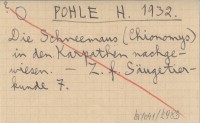 POHLE H. 1932.
Die Schneemaus (Chionomys)
in den Karpathen nachge-
wiesen. — Z. f. Säugetier-
kunde 7.